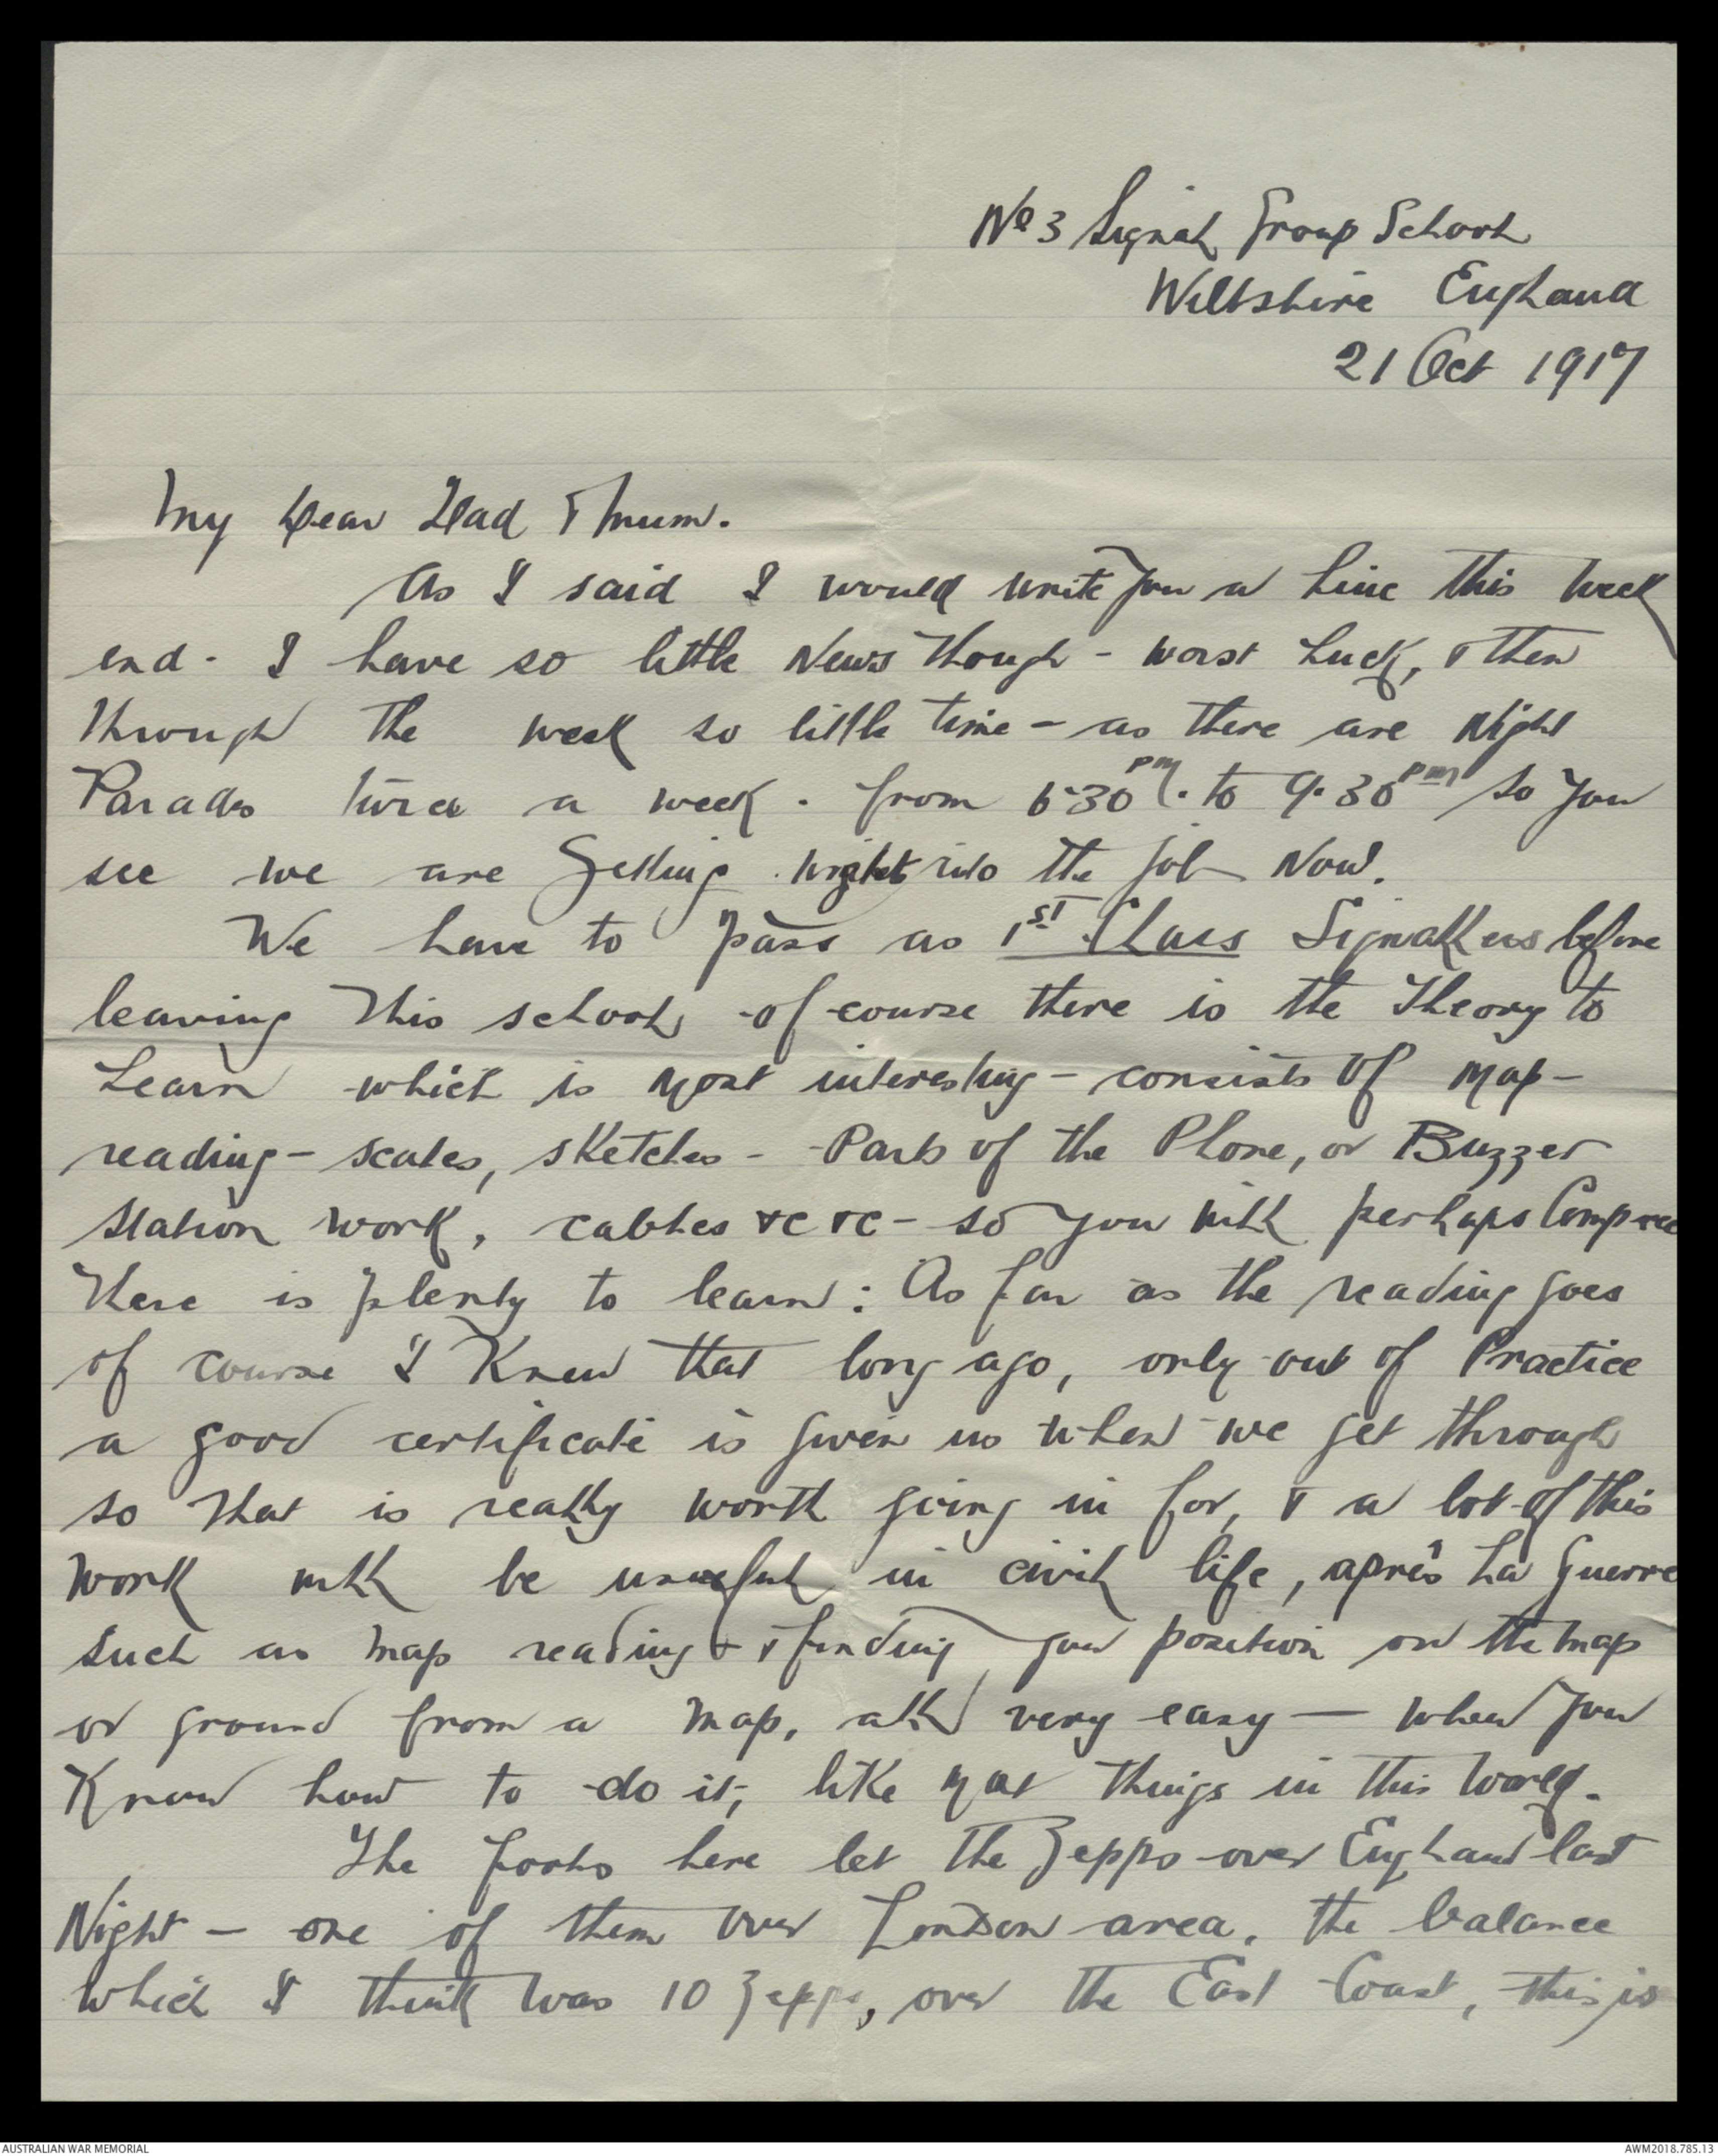 No 3 Signal Group School
Wiltshire England
21 Oct 1917
My Dear Dad & Mum.
As I said I would write you a line this week
end. I have so little News though - worst luck, & then
through the week so little time - as there are Night
Parades twice a week. from 6.30 pm. to 9.30 pm so you
see we are Getting right into the job Now.
We have to pass as 1st Class Signallers before
leaving this school - of course there is the Theory to
Learn - which is Most interesting - consists of Map-
reading - scales, sketches - Parts of the Phone, or Buzzer
station work, cables &c &c - so you will perhaps Compree
there is plenty to learn: As far as the reading goes
of course I Knew that long ago, only out of Practice
a good certificate is given us when we get through
so that is really worth going in for, & a lot of this
work will be useful in civil life, après La Guerre
such as Map reading & finding your position on the Map
or ground from a Map, all very easy - when you
Know how to do it, like Most things in this World.
The fools here let the Zepps over England last
Night - one of them over London area, the balance
which I think was 10 Zepps, over the East Coast, this is
AUSTRALIAN WAR MEMORIAL
AWM2018.785.13